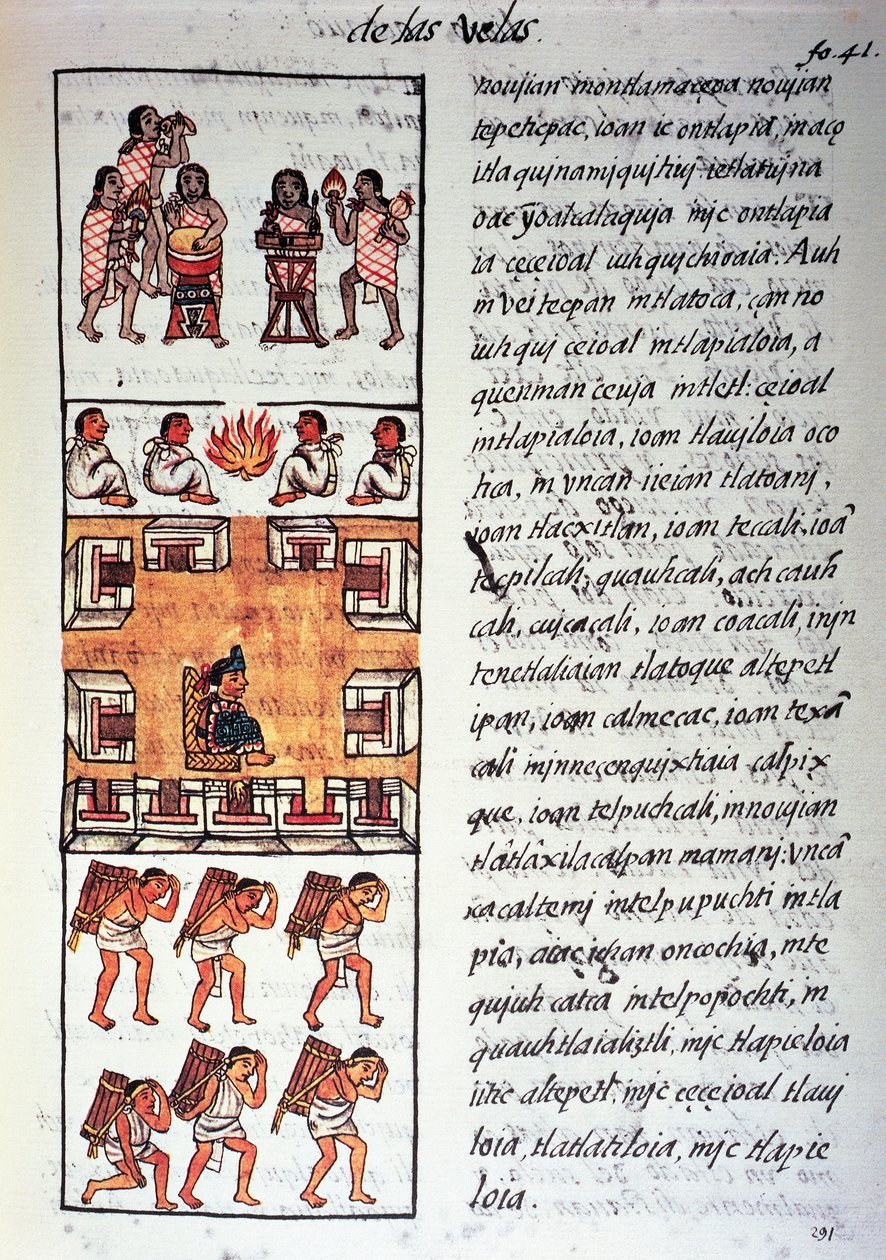 de las velas.
fo. 41.
noujian montlamaçeoa noujian
tepeticpac, ioan ic ontlapia, in aço
itla quinamjquitiuj ietlatujna
oac yoalcalaquja mjc ontlapia
ia çeçeioal iuhqujchioaia. Auh
in vei tecpan intlatoca, çan no
iuhquj ceioal intlapialoia, a
quenman ceuja intletl: çeioal
intlapialoia, ioan tlaujloia oco
tica, in vncan iieian tlatoanj,
ioan tlacxitlan, ioan teccali, ioã
tecpilcali, quauhcali, achcauh
cali, cujcacali, ioan coacali, injn
tenetlaliaian tlatoque altepetl
ipan, ioan calmecac, ioan texã
cali injnneçenqujxtiaia calpix
que, ioan telpuchcali, in noujian
tlâtlâxilacalpan mamanj: vncã
xacaltemj intelpupuchti intla
pia, aiac ichan oncochia, inte
qujuh catca intelpopochti, in
quauhtlaializtli, mjc tlapieloia
iitic altepetl, mjc ceçeioal tlauj
loia, tlatlatiloia, mjc tlapie
loia.
291